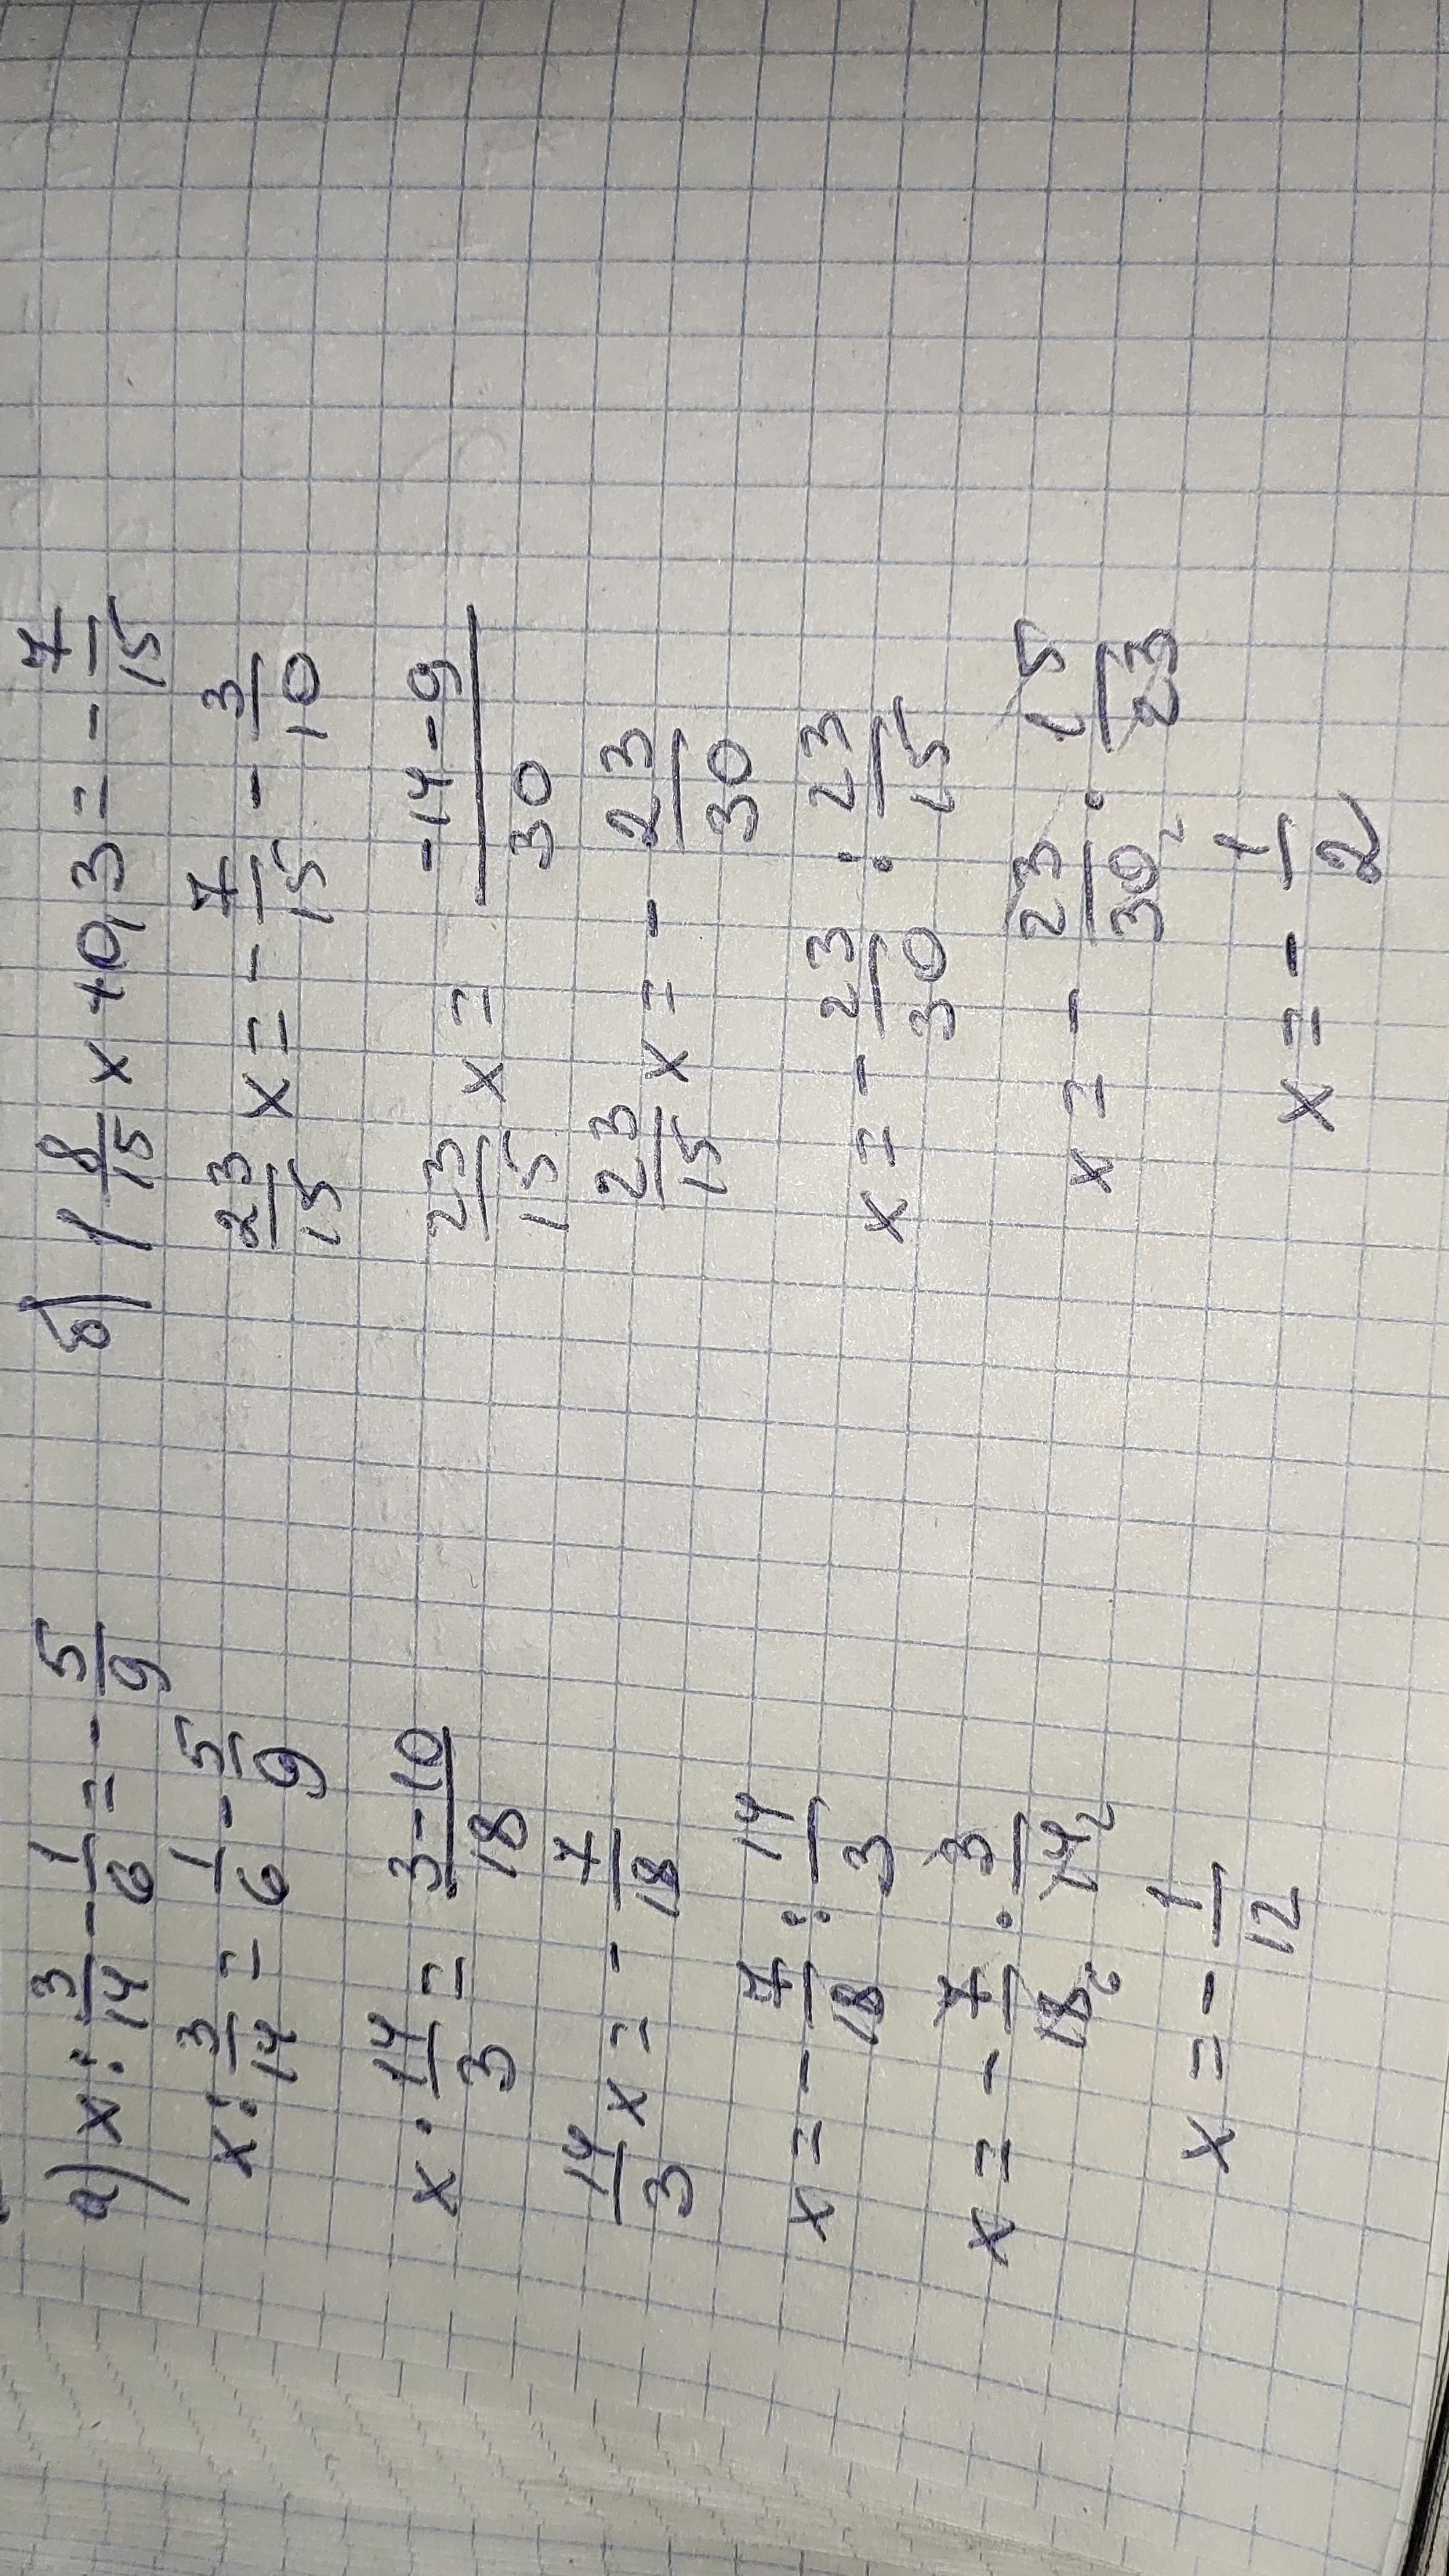 а) x : 3/14 - 1/6 = - 5/9
x : 3/14 = 1/6 - 5/9
x · 14/3 = 3-10/18
14/3 x = - 7/18
x = - 7/18 : 14/3
x = - 7/18 6 · 3/14 2
x = - 1/12
б) 1 8/15 x + 0,3 = - 7/15
23/15 x = - 7/15 - 3/10
23/15 x = -14-9/30
23/15 x = - 23/30
x = - 23/30 : 23/15
x = - 23/30 2 · 15/23
x = - 1/2